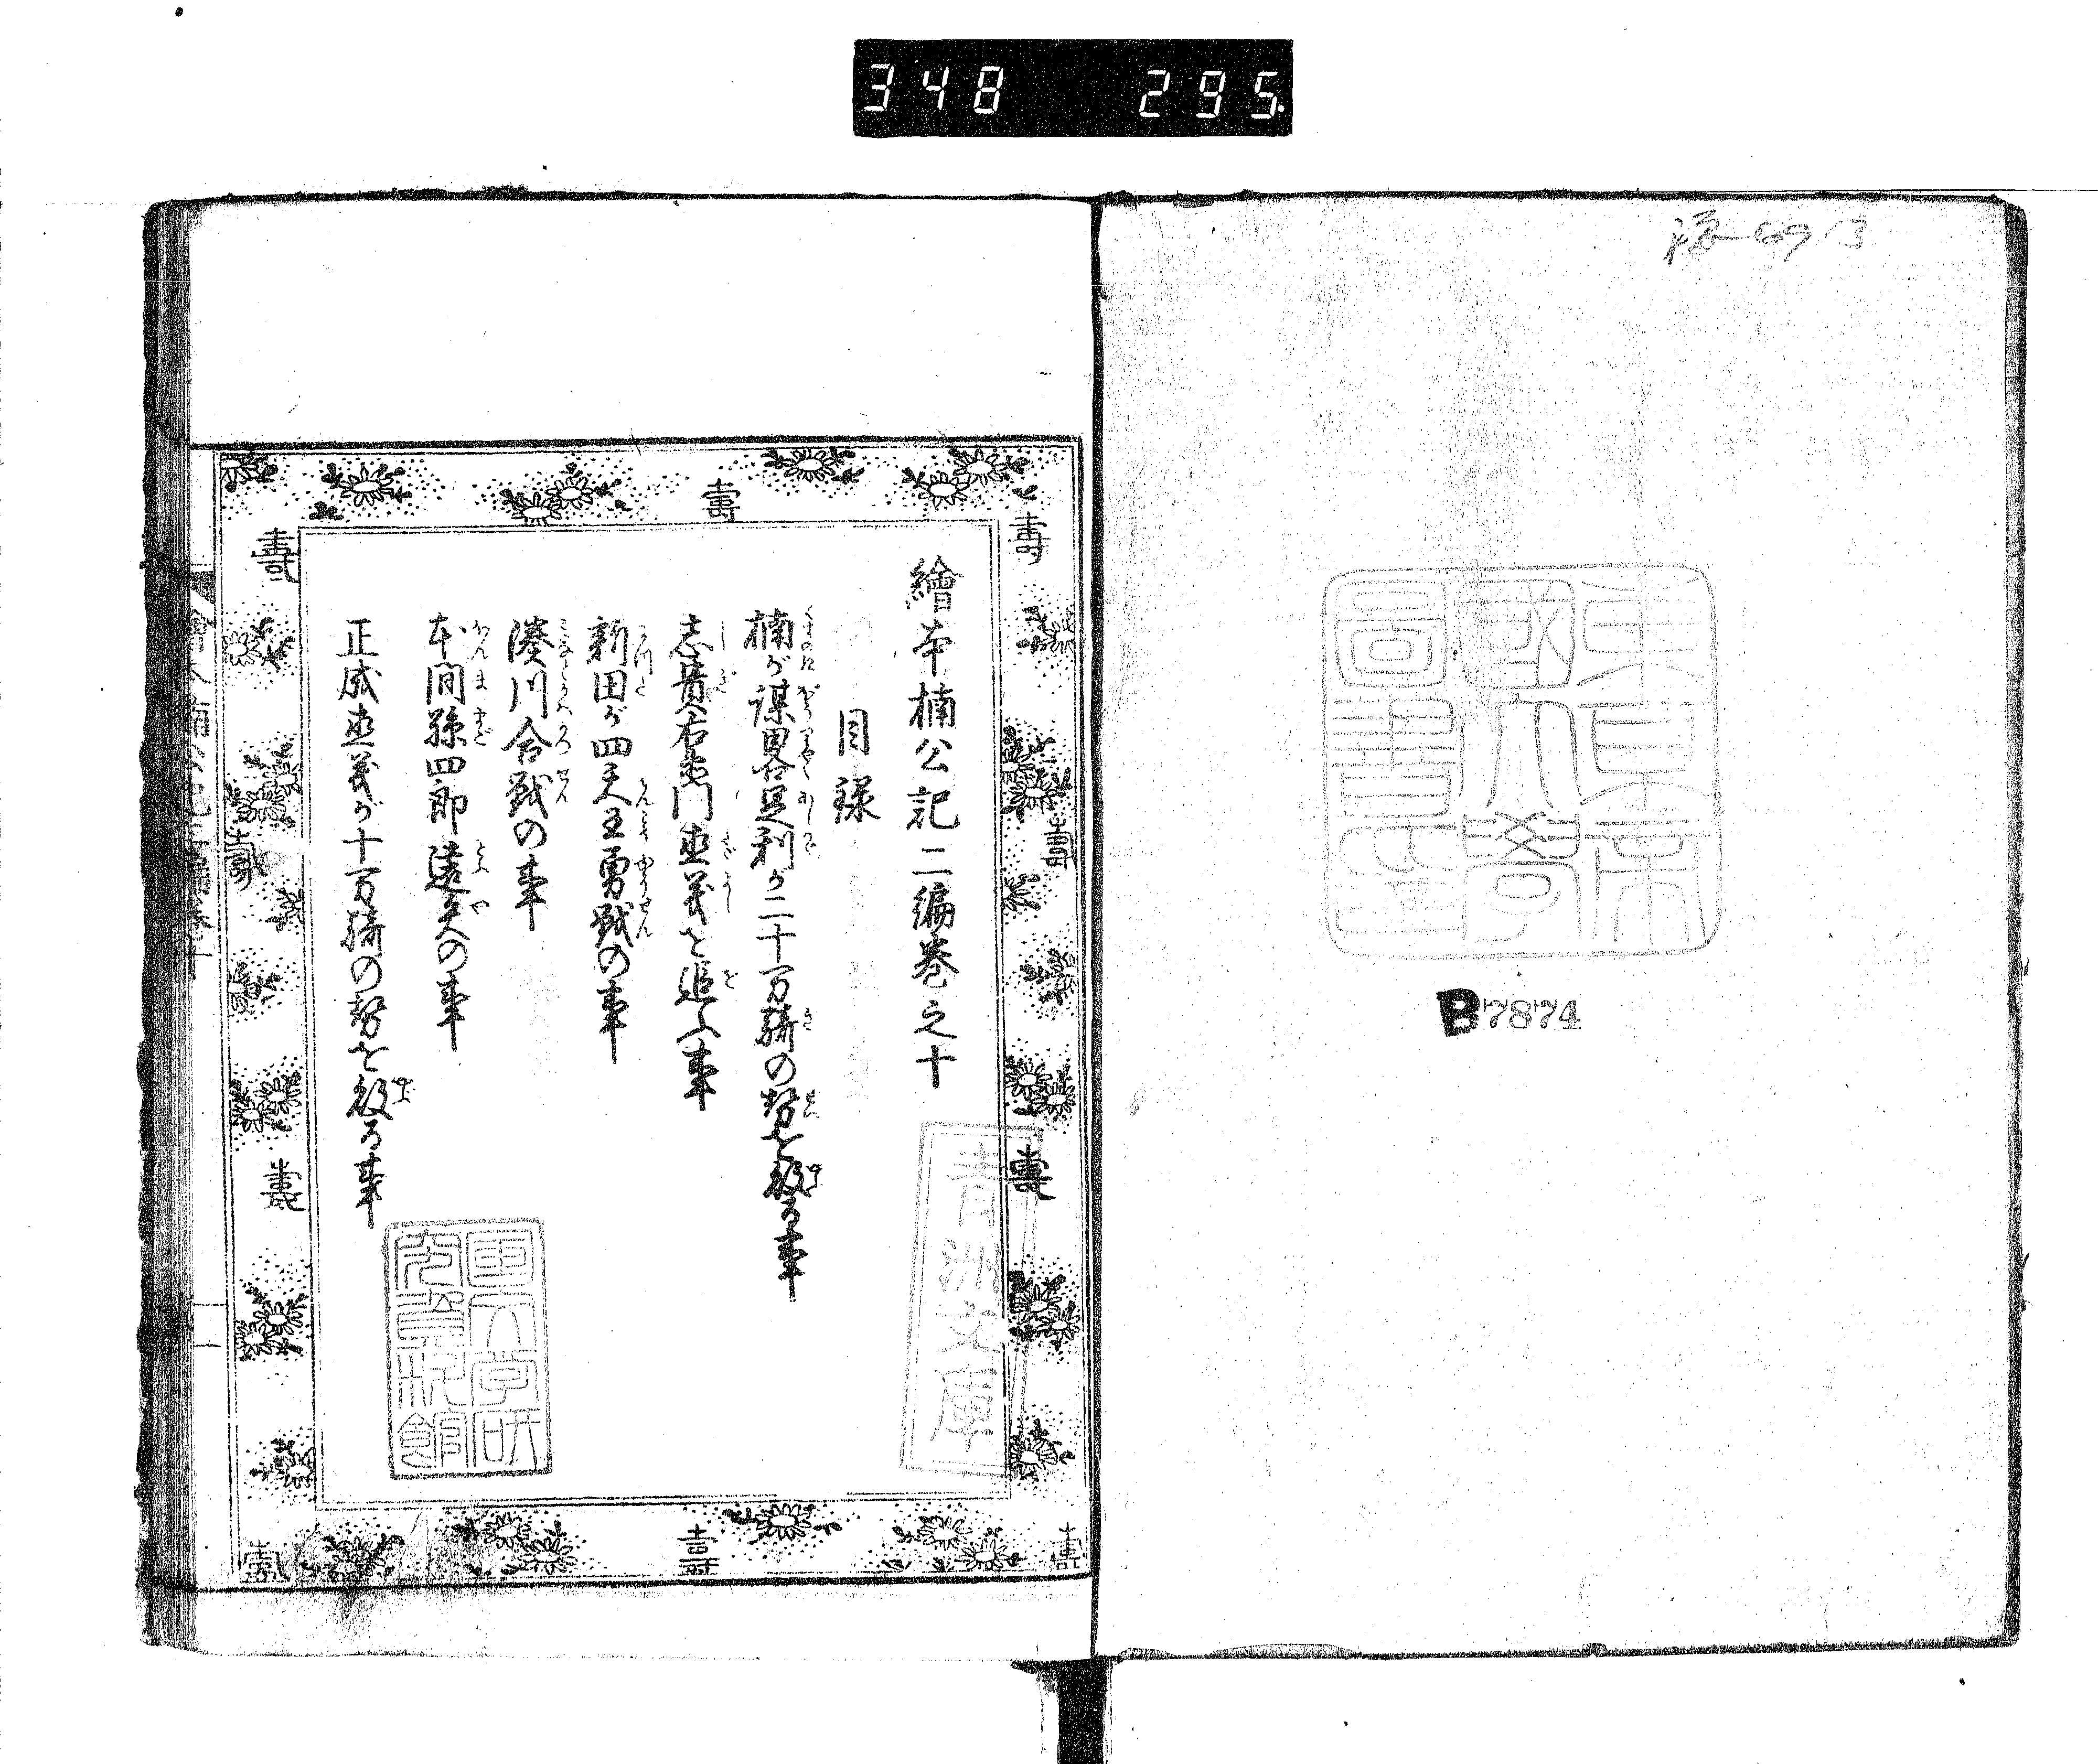 348 295
東京帝國大學圖書印
B7874
繪本楠公記二編卷之十
目録
楠が謀畧足利が二十万騎の勢を破る事
志貴右衛門直義を追ふ事
新田が四天王勇戦の事
湊川合戦の事
本間孫四郎遠矢の事
正成直義が十万騎の勢を破る事
青洲文庫
国文学研究資料館
壽
壽
壽
壽
壽
壽
壽
壽
壽
壽